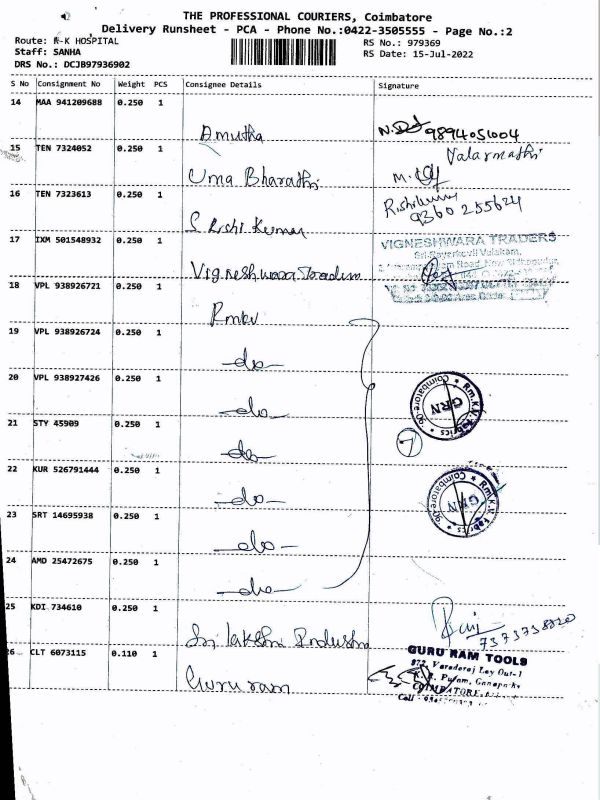 THE PROFESSIONAL COURIERS, Coimbatore
Delivery Runsheet - PCA - Phone No.:0422-3505555 - Page No.:2
Route: R-K HOSPITAL
Staff: SANHA
DRS No.: DCJB97936902
RS No.: 979369
RS Date: 15-Jul-2022
S No Consignment No Weight PCS Consignee Details Signature
14 MAA 941209688 0.250 1 Amutha 9894051004
15 TEN 7324052 0.250 1 Uma Bharathi Valarmathi
16 TEN 7323613 0.250 1 S Rishi Kumar 9360255624
17 IXM 501548932 0.250 1 Vigneshwara Traders VIGNESHWARA TRADERS
18 VPL 938926721 0.250 1 Rmkv
19 VPL 938926724 0.250 1 -do-
20 VPL 938927426 0.250 1 -do- Rm.K.V. Fabrics Coimbatore GRN
21 STY 45909 0.250 1 -do- 7
22 KUR 526791444 0.250 1 -do- Rm.K.V. Fabrics Coimbatore GRN
23 SRT 14695938 0.250 1 -do-
24 AMD 25472675 0.250 1 -do-
25 KDI 734610 0.250 1 Sri Lakshmi
26 CLT 6073115 0.110 1 Guru ram GURU RAM TOOLS
972, Varadaraj Lay Out-1
COIMBATORE